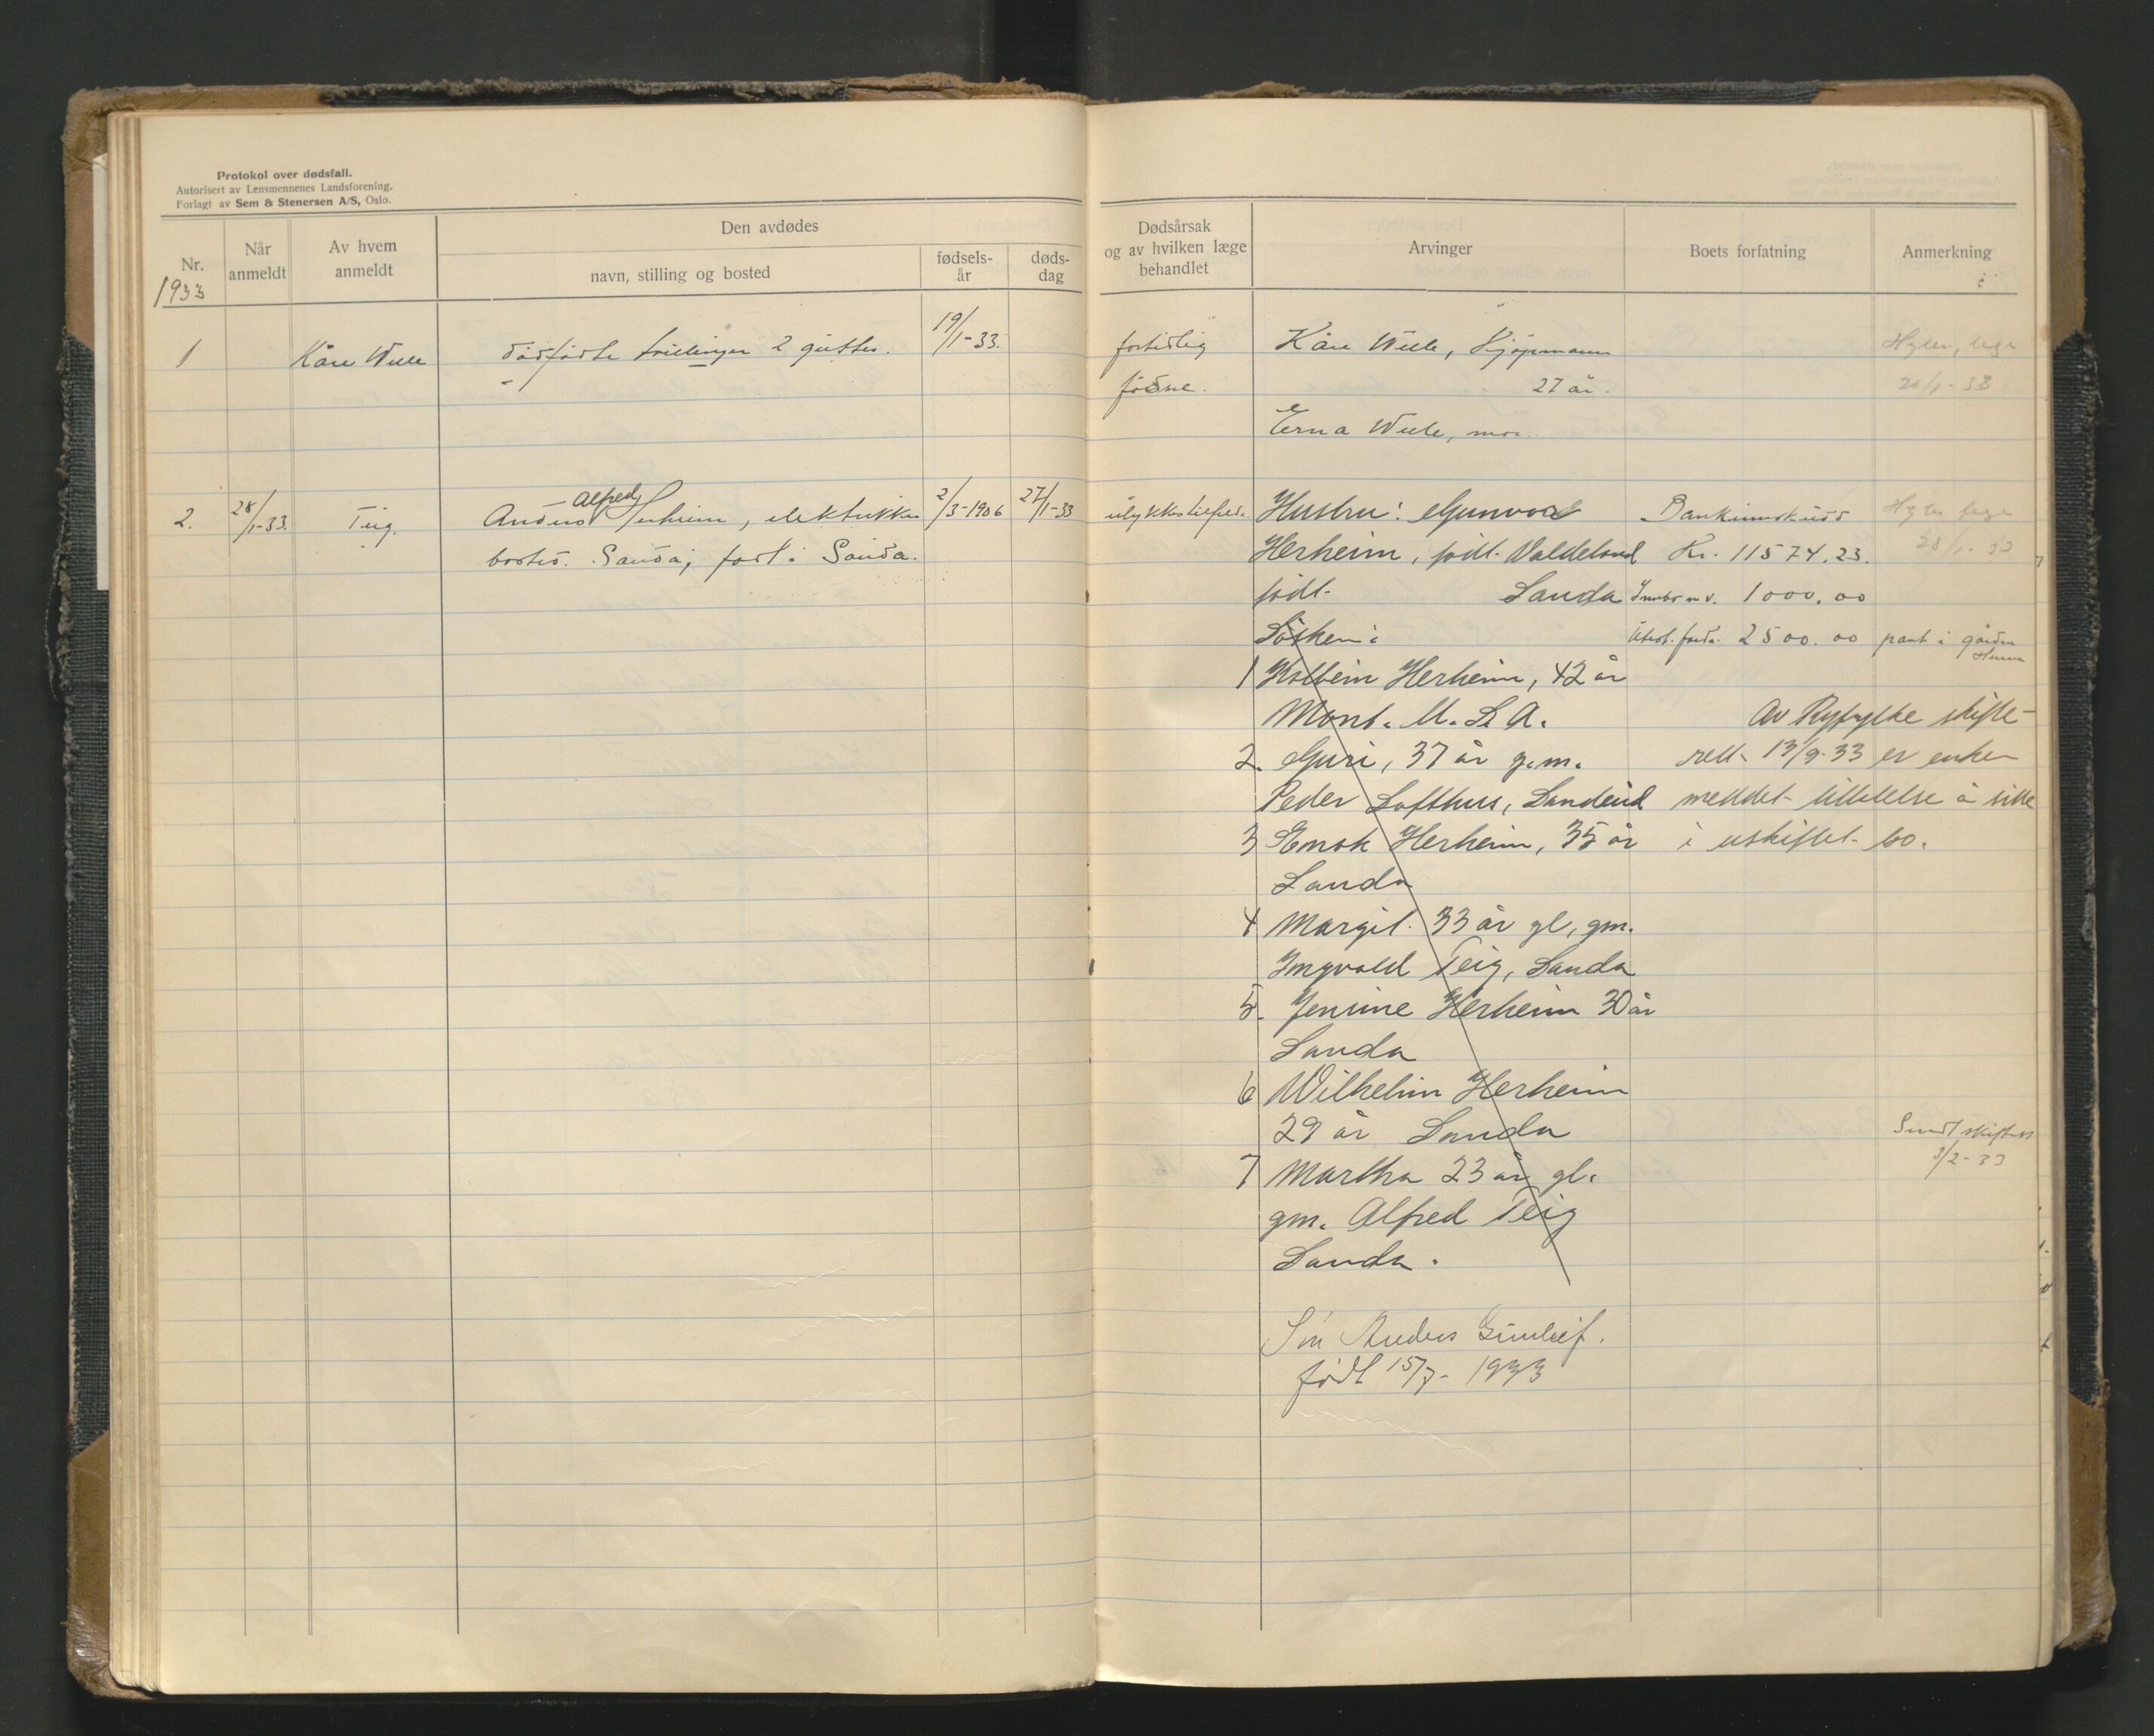 Protokol over dødsfall.
Autorisert av Lensmennenes Landsforening.
Forlagt av Sem & Stenersen A/S, Oslo.
Nr.
1933
Når
anmeldt
Av hvem
anmeldt
Den avdødes
navn, stilling og bosted
fødsels-
år
døds-
dag
Dødsårsak
og av hvilken læge
behandlet
Arvinger
Boets forfatning
Anmerkning
1
Kåre Wiele
dødfødte trillinger 2 gutter.
19/1-33.
fortidlig
fødsel.
Kåre Wiele, Kjøpmann
27 år.
Erna Wiele, mor.
20/1-33
2.
28/1-33.
Teig.
Alfred
Anders Herheim, elektriker
bosted. Sauda, født i Sauda.
2/3-1906
27/1-33
ulykkestilfelde
Hustru: Gunvor
Herheim, født Valdeland
født Sauda
Søsken:
1 Kolbein Herheim, 42 år
Mont. U.S.A.
2. Guri, 37 år g.m.
Peder Lofthus, Sandeid
3 Enok Herheim, 35 år
Sauda
4 Margit 33 år gl, gm.
Ingvald Teig, Sauda
5. Jenine Herheim 30 år
Sauda
6 Wilhelm Herheim
29 år Sauda
7 Martha 23 år gl.
gm. Alfred Teig
Sauda.
Søn Anders Gunleif.
født 15/7-1933
Bankinnskudd
Kr. 11574.23.
Innbo m.v. 1000.00
Utest. ford. 2500.00 pant i gården
Av Ryfylke skifte-
rett 13/9-33 er enken
meddelt tillatelse å sitte
i uskiftet bo.
Sendt skifterett
3/2-33